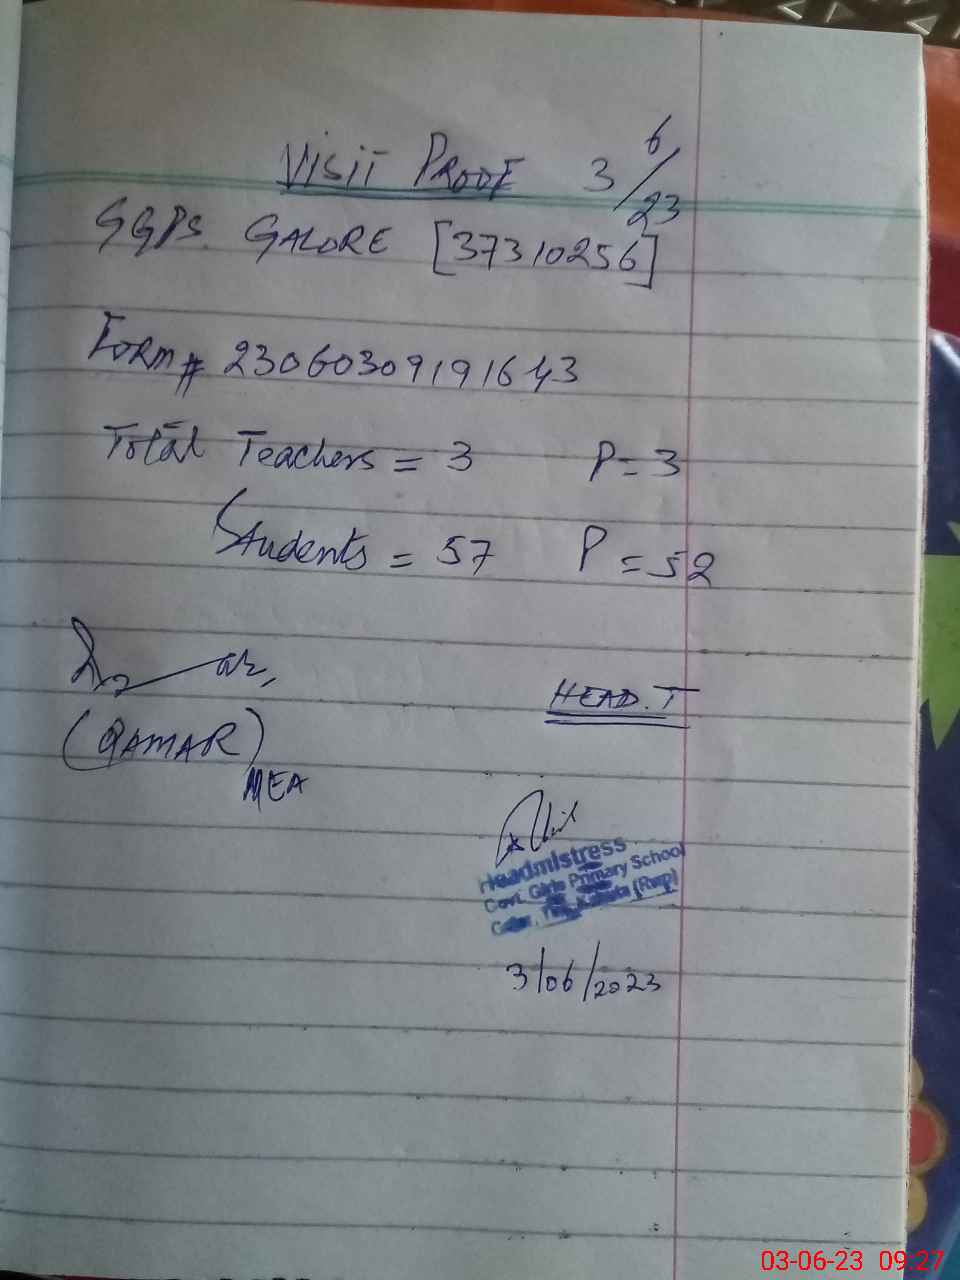 VISIT PROOF 3/6/23
GGPS. GALORE [37310256]
FORM # 23060309191643
Total Teachers = 3 P = 3
Students = 57 P = 52
(QAMAR)
MEA
HEAD.T
Headmistress
Govt. Girls Primary School
(Rwp)
3/06/2023
03-06-23 09:27